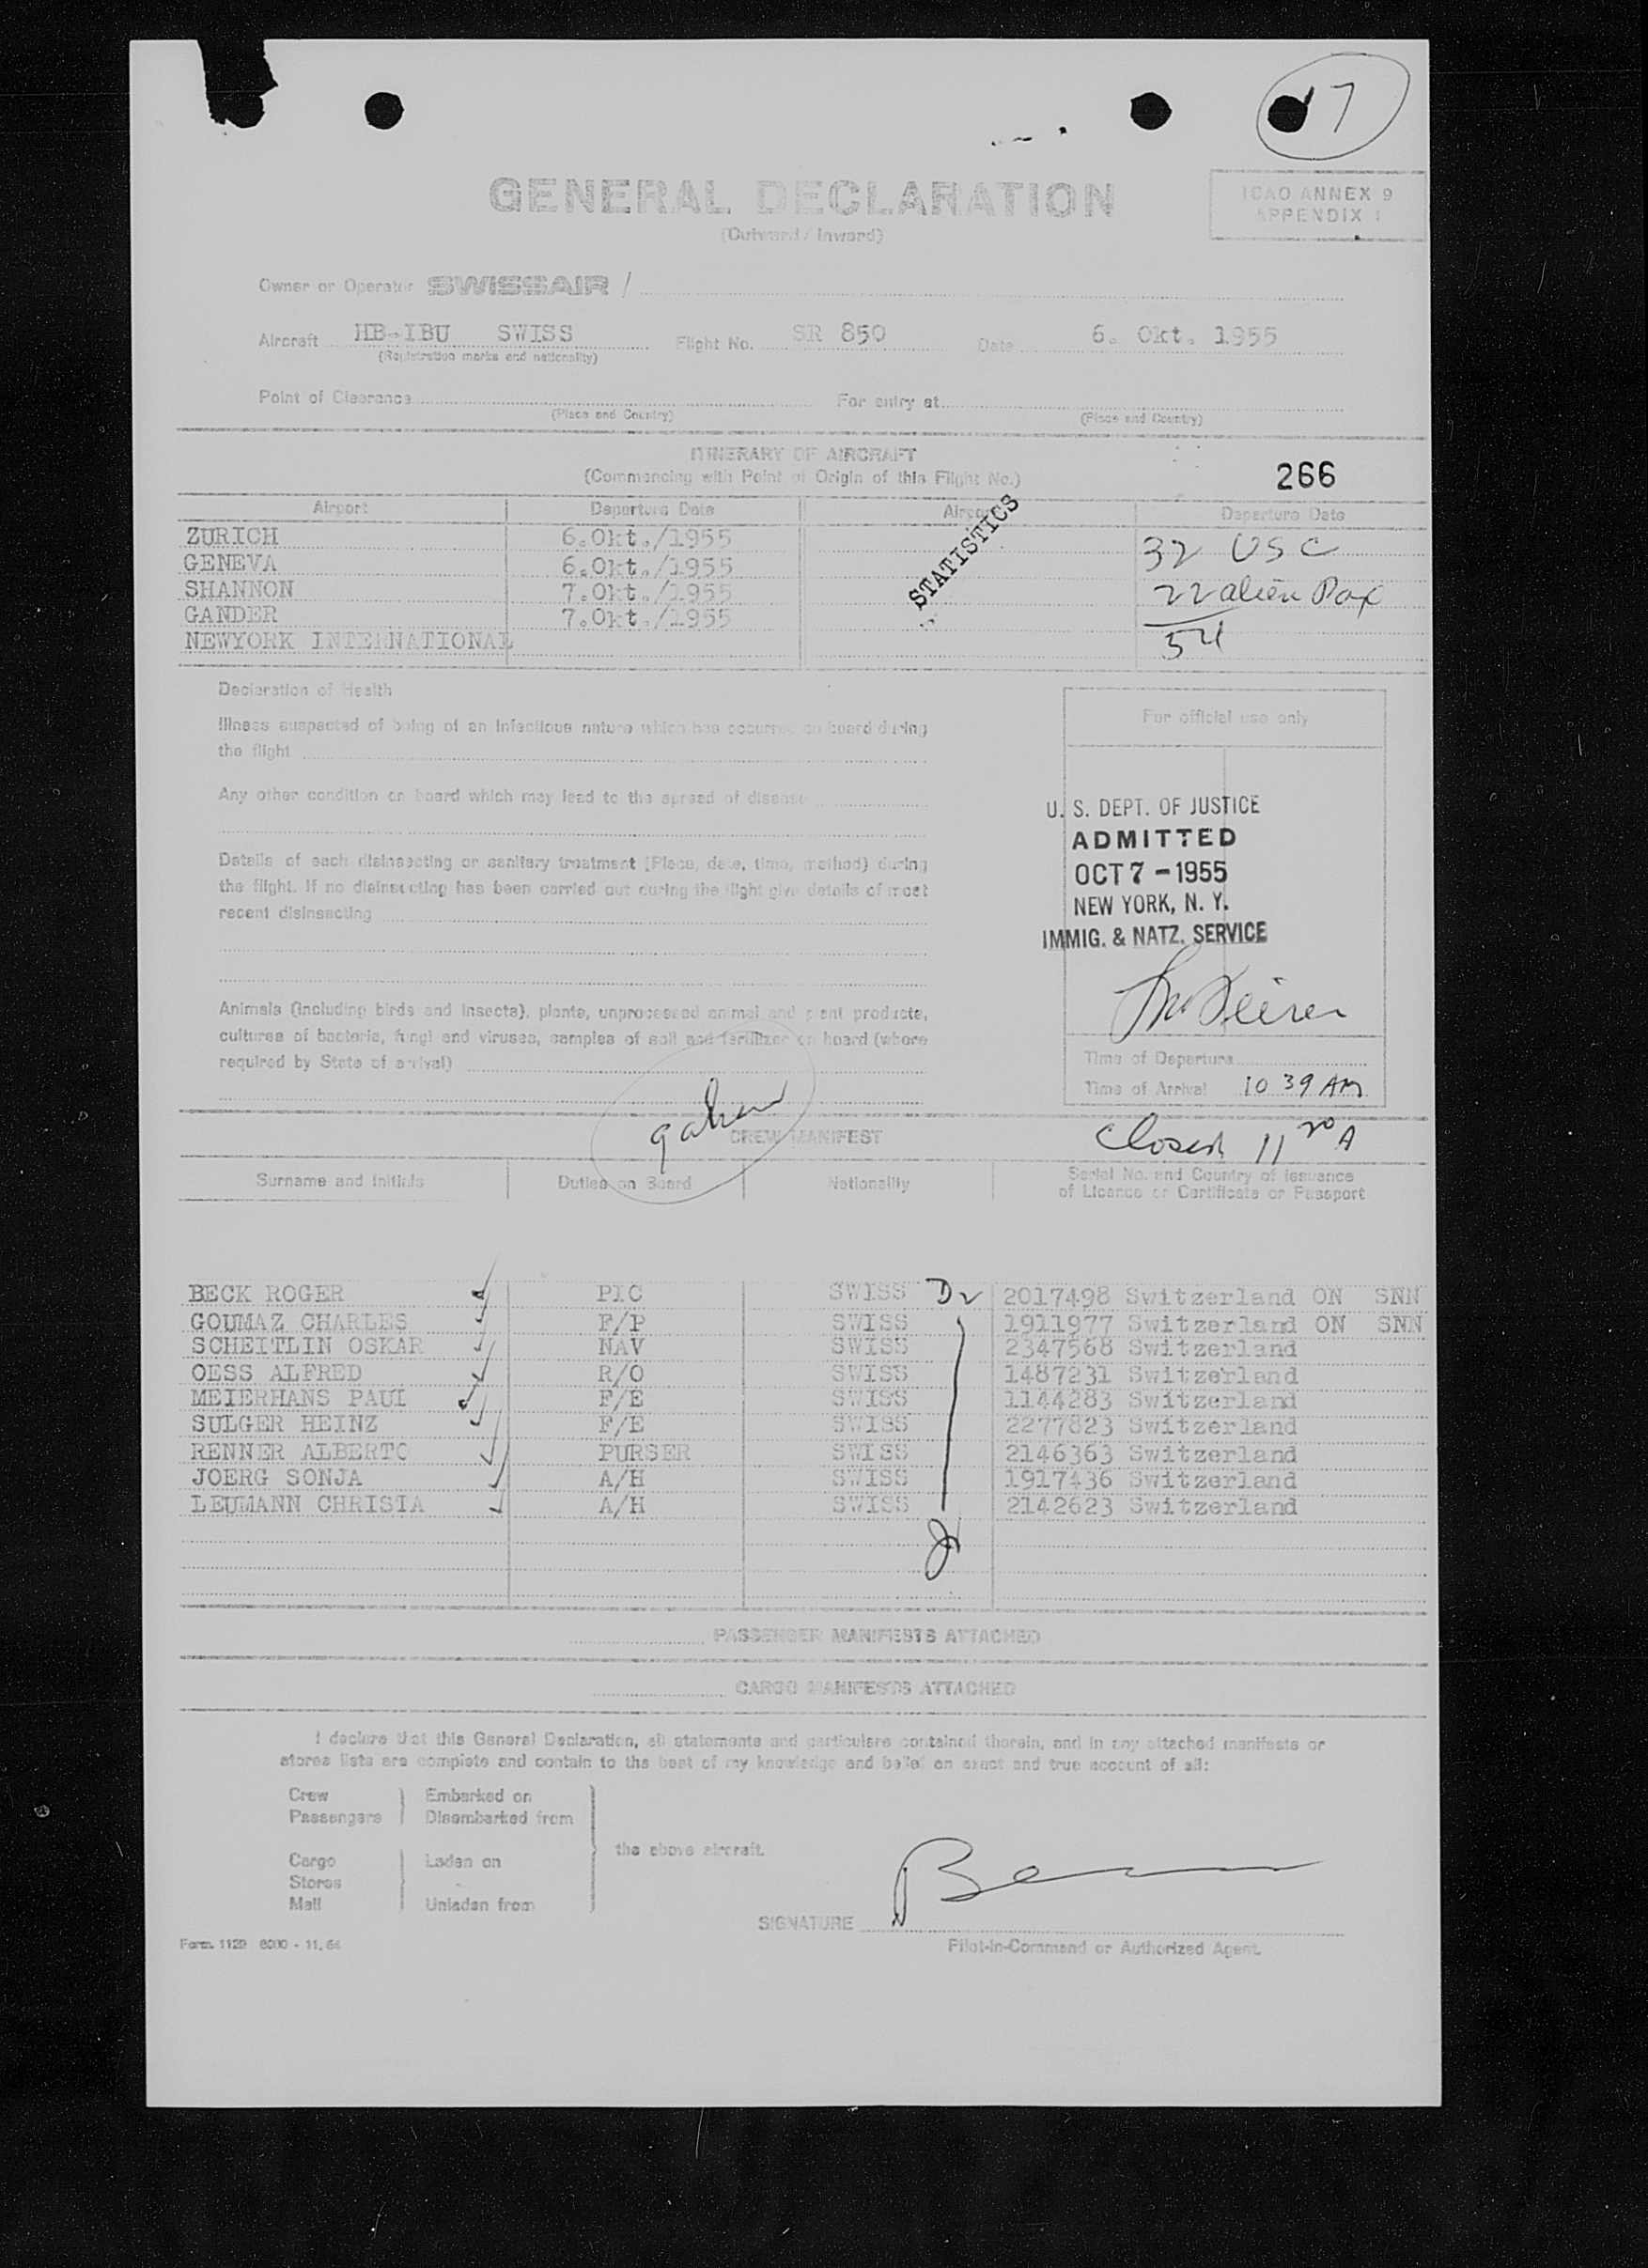 17
GENERAL DECLARATION
(Outward / Inward)
ICAO ANNEX 9
APPENDIX 1
Owner or Operator SWISSAIR /
Aircraft HB-IBU SWISS Flight No. SR 850 Date 6. Okt. 1955
(Registration marks and nationality)
Point of Clearance For entry at
(Place and Country) (Place and Country)
ITINERARY OF AIRCRAFT
(Commencing with Point of Origin of this Flight No.)
266
Airport Departure Date Airport Departure Date
STATISTICS
ZURICH 6.Okt./1955 32 USC
GENEVA 6.Okt./1955
SHANNON 7.Okt./1955 22 alien Pax
GANDER 7.Okt./1955
NEWYORK INTERNATIONAL 54
Declaration of Health
Illness suspected of being of an infectious nature which has occurred on board during
the flight
Any other condition on board which may lead to the spread of disease
Details of each disinsecting or sanitary treatment (Place, date, time, method) during
the flight. If no disinsecting has been carried out during the flight give details of most
recent disinsecting
Animals (including birds and insects), plants, unprocessed animal and plant products,
cultures of bacteria, fungi and viruses, samples of soil and fertilizer on board (where
required by State of arrival)
For official use only
U. S. DEPT. OF JUSTICE
ADMITTED
OCT 7 - 1955
NEW YORK, N. Y.
IMMIG. & NATZ. SERVICE
Time of Departure
Time of Arrival 10 39 AM
Closed 11 20 A
CREW MANIFEST
Surname and Initials Duties on Board Nationality Serial No. and Country of Issuance
of Licence or Certificate or Passport
BECK ROGER PIC SWISS D2 2017498 Switzerland ON SNN
GOUMAZ CHARLES F/P SWISS 1911977 Switzerland ON SNN
SCHEITLIN OSKAR NAV SWISS 2347568 Switzerland
OESS ALFRED R/O SWISS 1487231 Switzerland
MEIERHANS PAUL F/E SWISS 1144283 Switzerland
SULGER HEINZ F/E SWISS 2277823 Switzerland
RENNER ALBERTO PURSER SWISS 2146363 Switzerland
JOERG SONJA A/H SWISS 1917436 Switzerland
LEUMANN CHRISTA A/H SWISS 2142623 Switzerland
PASSENGER MANIFESTS ATTACHED
CARGO MANIFESTS ATTACHED
I declare that this General Declaration, all statements and particulars contained therein, and in any attached manifests or
stores lists are complete and contain to the best of my knowledge and belief an exact and true account of all:
Crew Embarked on
Passengers Disembarked from
the above aircraft.
Cargo Laden on
Stores
Mail Unladen from
SIGNATURE
Form. 1129 6000 - 11. 54 Pilot-in-Command or Authorized Agent.